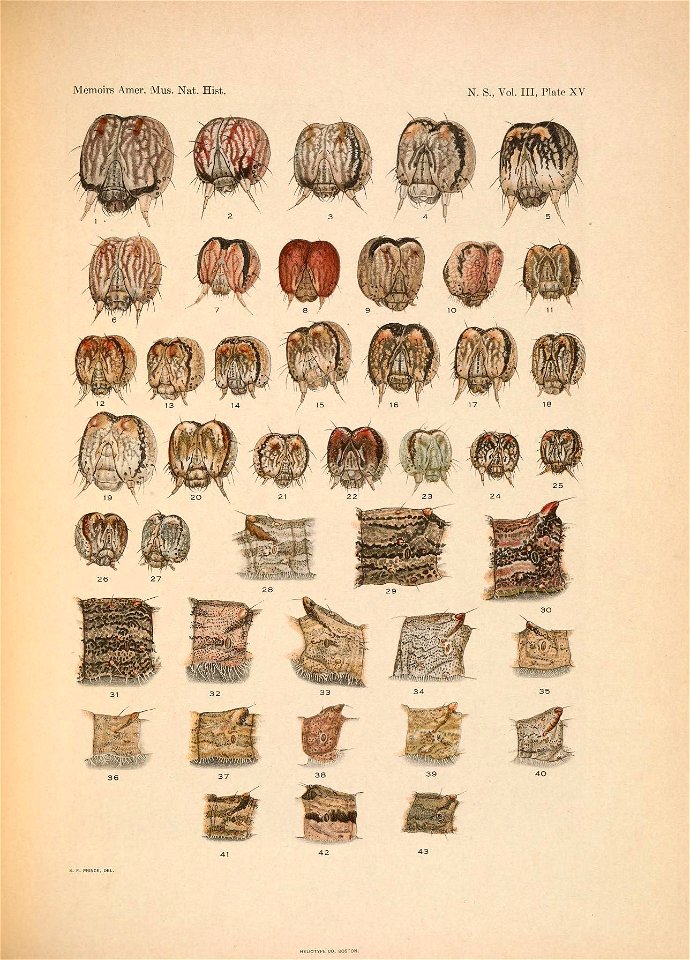 Memoirs Amer. Mus. Nat. Hist.
N. S., Vol. III, Plate XV
1
2
3
4
5
6
7
8
9
10
11
12
13
14
15
16
17
18
19
20
21
22
23
24
25
26
27
28
29
30
31
32
33
34
35
36
37
38
39
40
41
42
43
DEL.
HELIOTYPE CO. BOSTON.